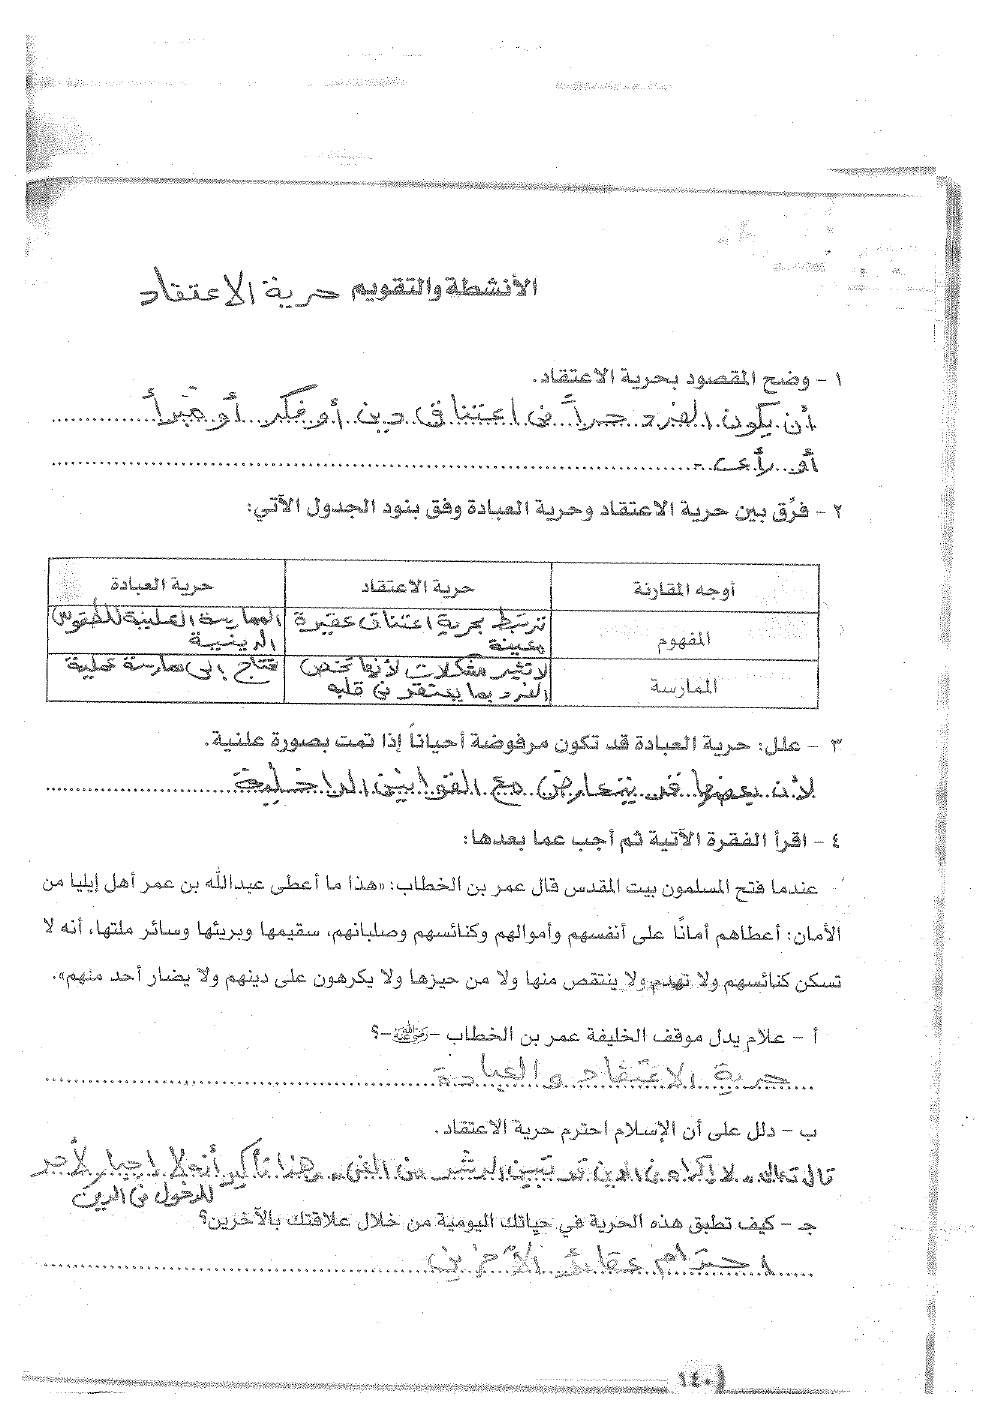 الأنشطة والتقويم حرية الاعتقاد
١ - وضح المقصود بحرية الاعتقاد.
أن يكون الفرد حراً في اعتناق دين أو فكر أو مبدأ
أو رأى.
٢ - فرِّق بين حرية الاعتقاد وحرية العبادة وفق بنود الجدول الآتي:
أوجه المقارنة حرية الاعتقاد حرية العبادة
المفهوم ترتبط بحرية اعتناق عقيدة معينة الممارسة العلنية للطقوس الدينية
الممارسة لا تثير مشكلات لأنها تخص الفرد بما يعتقد في قلبه تحتاج إلى ممارسة عملية
٣ - علل: حرية العبادة قد تكون مرفوضة أحياناً إذا تمت بصورة علنية.
لأن بعضها قد يتعارض مع القوانين الداخلية
٤ - اقرأ الفقرة الآتية ثم أجب عما بعدها:
عندما فتح المسلمون بيت المقدس قال عمر بن الخطاب: «هذا ما أعطى عبدالله بن عمر أهل إيليا من
الأمان: أعطاهم أمانًا على أنفسهم وأموالهم وكنائسهم وصلبانهم، سقيمها وبريئها وسائر ملتها، أنه لا
تسكن كنائسهم ولا تهدم ولا ينتقص منها ولا من حيزها ولا يكرهون على دينهم ولا يضار أحد منهم».
أ - علام يدل موقف الخليفة عمر بن الخطاب -رضي الله عنه-؟
حرية الاعتقاد والعبادة
ب - دلل على أن الإسلام احترم حرية الاعتقاد.
قال تعالى "لا إكراه في الدين قد تبين الرشد من الغي" هذا تأكيد أنه لا إجبار لأحد
للدخول في الدين
جـ - كيف تطبق هذه الحرية في حياتك اليومية من خلال علاقتك بالآخرين؟
احترام عقائد الآخرين
١٤٠